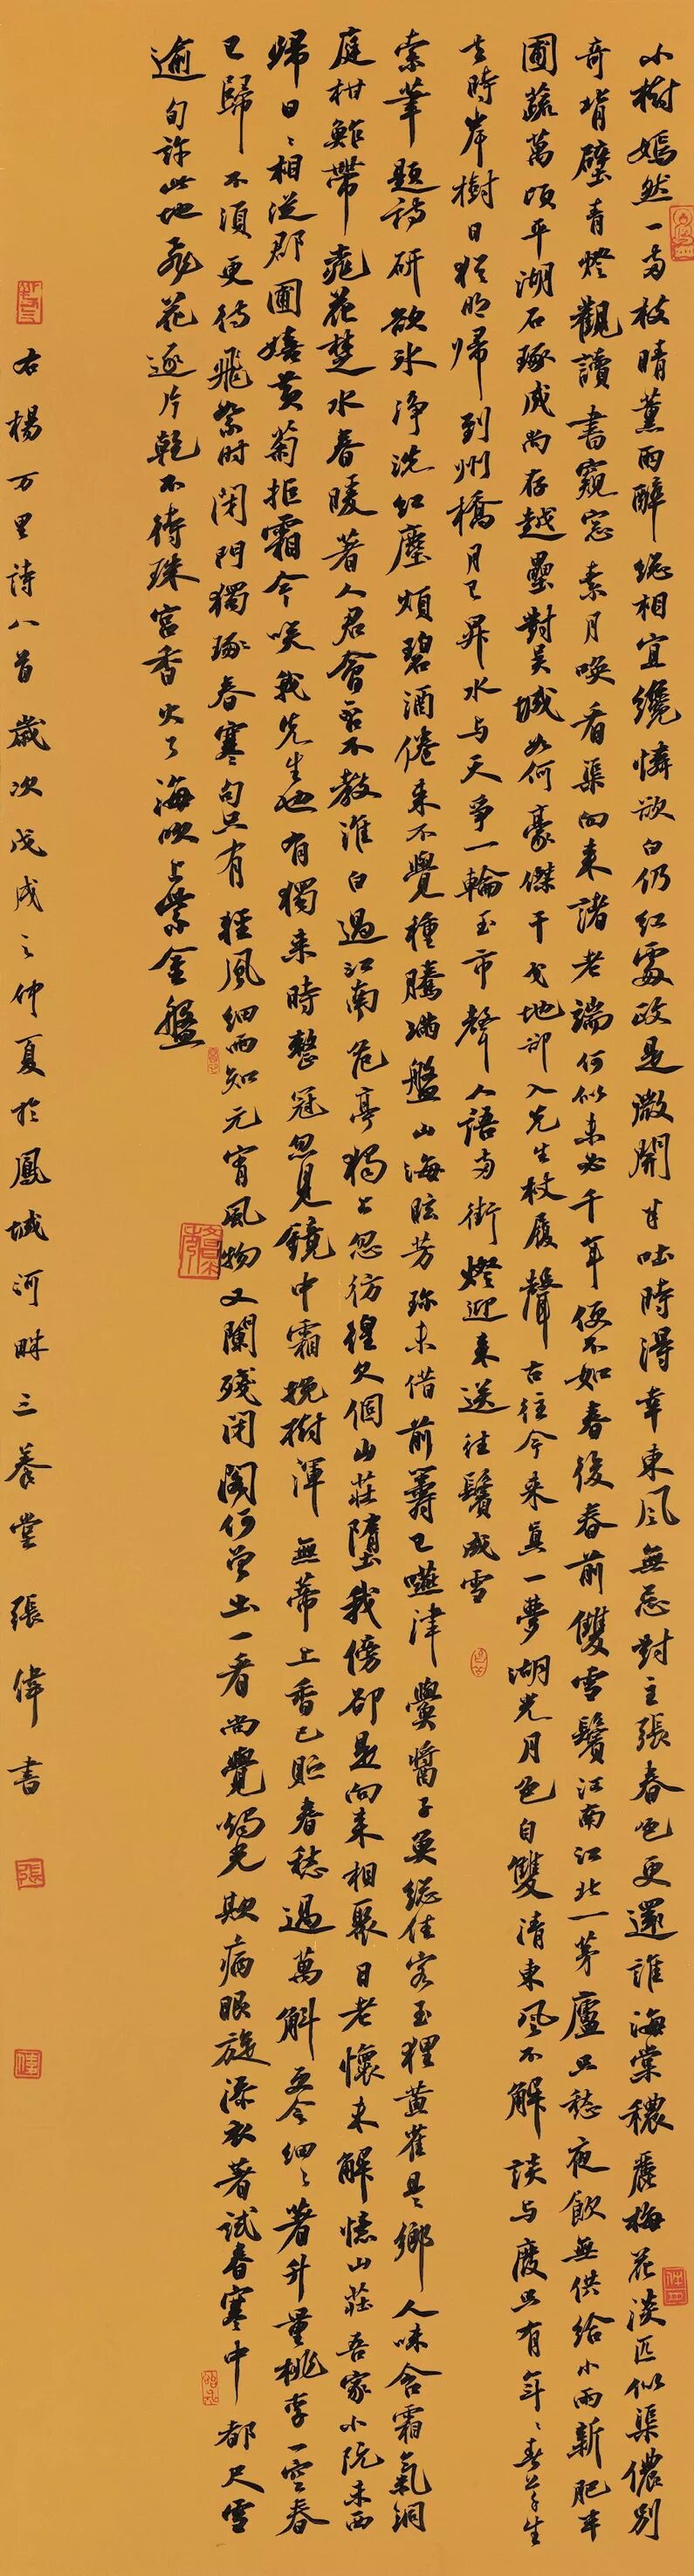 小樹嫣然一兩枝晴薰雨醉總相宜纔憐欲白仍紅處政是微開半吐時得幸東風無忌對主張春色更還誰海棠穠麗梅花淡匹似渠儂別
奇背壁青燈觀讀書窺窓素月喚看渠向來諸老端何似未必千年便不如春後春前雙雪鬢江南江北一茅廬只愁夜飲無供給小雨新肥半
圃蔬萬頃平湖石琢成尚存越壘對吳城如何豪傑干戈地卻入先生杖屨聲古往今來真一夢湖光月色自雙清東風不解談興廢只有年〻春草生
去時岸樹日猶明歸到州橋月已昇水与天爭一輪玉市聲人語兩街燈迎來送往鬢成雪
索筆題詩研欲冰淨洗紅塵煩碧酒倦來不覺睡騰滿盤山海眩芳珍未借前籌已嚥津鱟醬子魚總佳客玉狸黃雀是鄉人味含霜氣洞
庭柑鮓帶桃花楚水春暖著人君會否不教淮白過江南危亭獨上忽彷徨欠個山莊墮我傍卻是向來相聚日老懷未解憶山莊吾家小阮未西
歸日〻相從郡圃嬉黃菊拒霜今笑我先生也有獨來時整冠忽見鏡中霜挽樹渾無蒂上香已貯春愁過萬斛更令細〻著升量桃李一空春
已歸不須更待飛絮时閉門獨琢春寒句只有輕風細雨知元宵風物又闌殘閉閣何曾出一看尚覺燭光欺病眼旋添衣著試春寒中都尺雪
逾旬許此地飛花逐片乾不待珠宮香火了海吹上紫金盤
右楊万里詩八首歲次戊戌之仲夏於鳳城河畔三養堂張偉書
張
偉